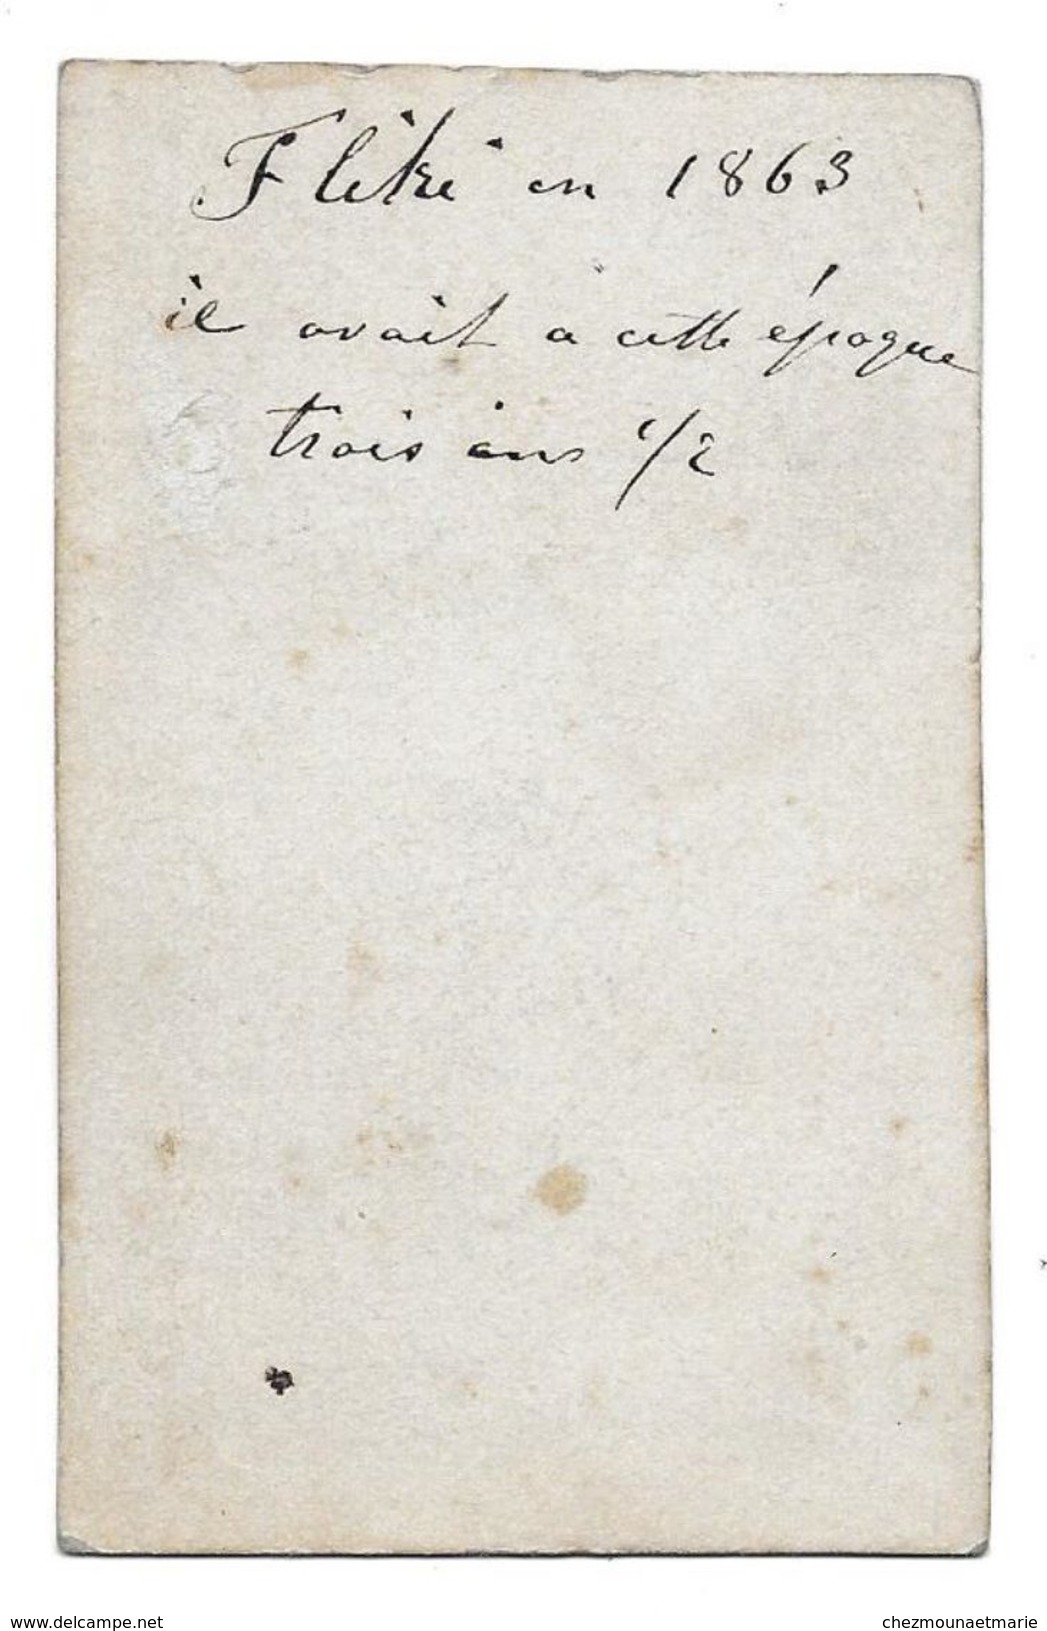 Fliké en 1863
il avait a cette époque
trois ans 1/2
www.delcampe.net
chezmounaetmarie